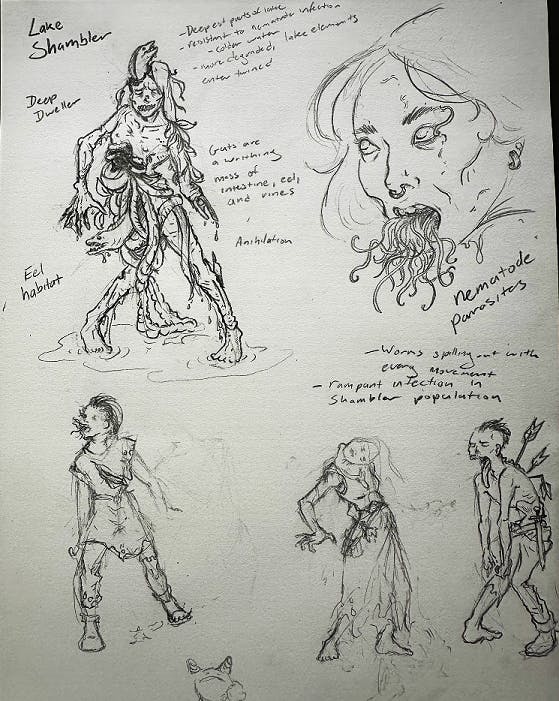 Lake
Shambler
- Deepest parts of lake
- resistant to nematode infection
- colder water
- more degraded, lake elements
entertwined
Deep
Dweller
Guts are
a writhing
mass of
intestine, eel,
and vines
Anihilation
Eel
habitat
nematode
parasites
- Worms spilling out with
every movement
- rampant infection in
Shambler population